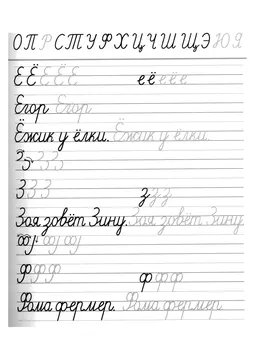 О П Р С Т У Ф Х Ц Ч Ш Щ Э Ю Я
Е Ё Е Ё Е е ё е ё е
Егор Егор
Ёжик у ёлки. Ёжик у ёлки.
З З З
З З З з з з
Зоя зовёт Зину. Зоя зовёт Зину.
Ф Ф Ф ф ф ф
Фома фермер. Фома фермер.